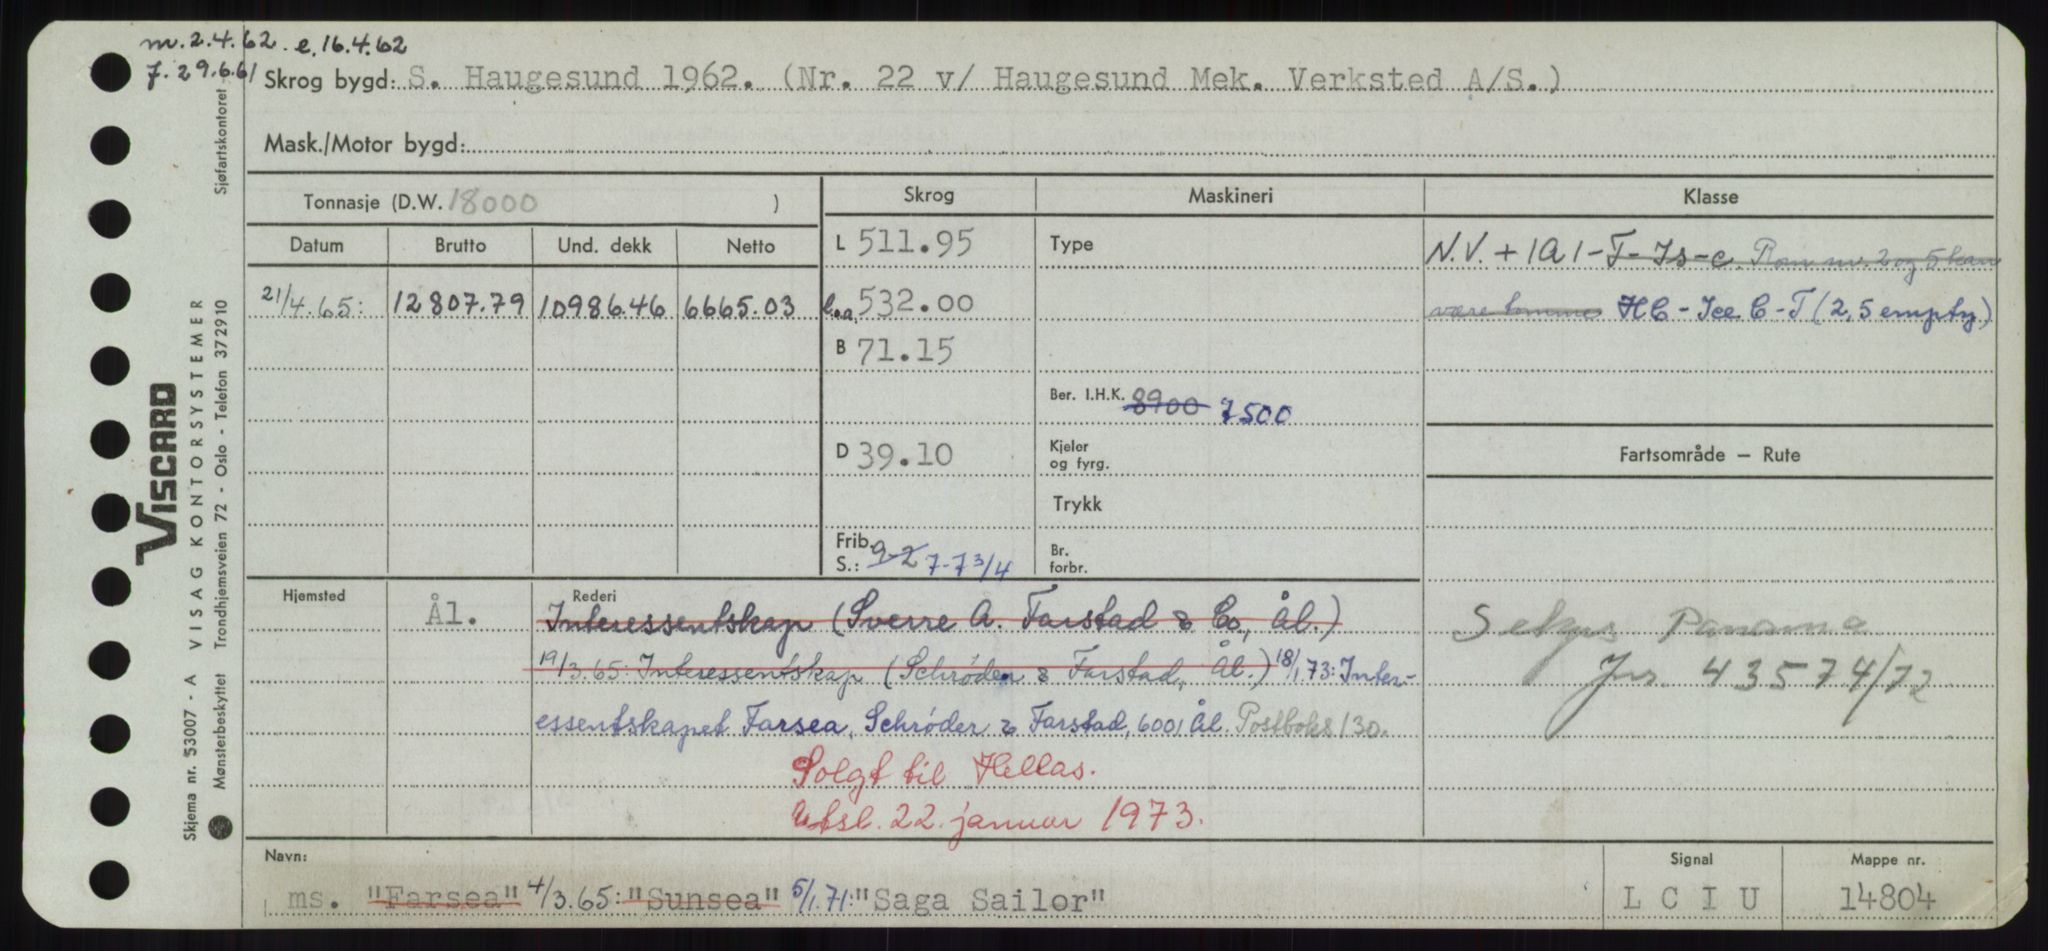 m. 2.4.62. e. 16.4.62
f. 29.6.61
Skrog bygd: S. Haugesund 1962. (Nr. 22 v/ Haugesund Mek. Verksted A/S.)
Mask./Motor bygd:
Tonnasje (D.W. 18000 )
Skrog Maskineri Klasse
Datum Brutto Und. dekk Netto
L 511.95 Type
N.V. + 1A1 - T - Is - c. Rom nr. 2 og 5 kan
21/4.65: 12807.79 10986.46 6665.03 l.a. 532.00
være tomme HC - Ice C - T (2,5 empty)
B 71.15
Ber. I.H.K. 8900 7500
D 39.10 Kjeler
og fyrg.
Fartsområde – Rute
Trykk
Frib.
S.: 9-2 7-7 3/4
Br.
forbr.
Hjemsted Ål. Rederi
Interessentskap (Sverre A. Farstad & Co., Ål.)
19/3.65: Interessentskap (Schrøder & Farstad, Ål.) 18/1,73: Inter-
essentskapet Farsea, Schrøder & Farstad, 6001 Ål. Postboks 130.
Solgt til Hellas.
Utsl. 22. januar 1973.
Selges Panama
Jnr. 43574/72
Navn: Signal Mappe nr.
ms. "Farsea" 4/3.65: "Sunsea" 5/1.71: "Saga Sailor" LCIU 14804
VISCARD
Skjema nr. 53007 - A VISAG KONTORSYSTEMER
Mønsterbeskyttet Trondhjemsveien 72 - Oslo - Telefon 372910
Sjøfartskontoret